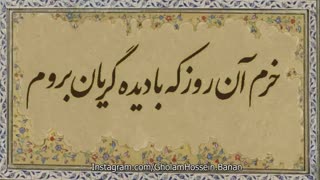 خرم آن روز که با دیده گریان بروم
Instagram.com/GholamHossein.Banan